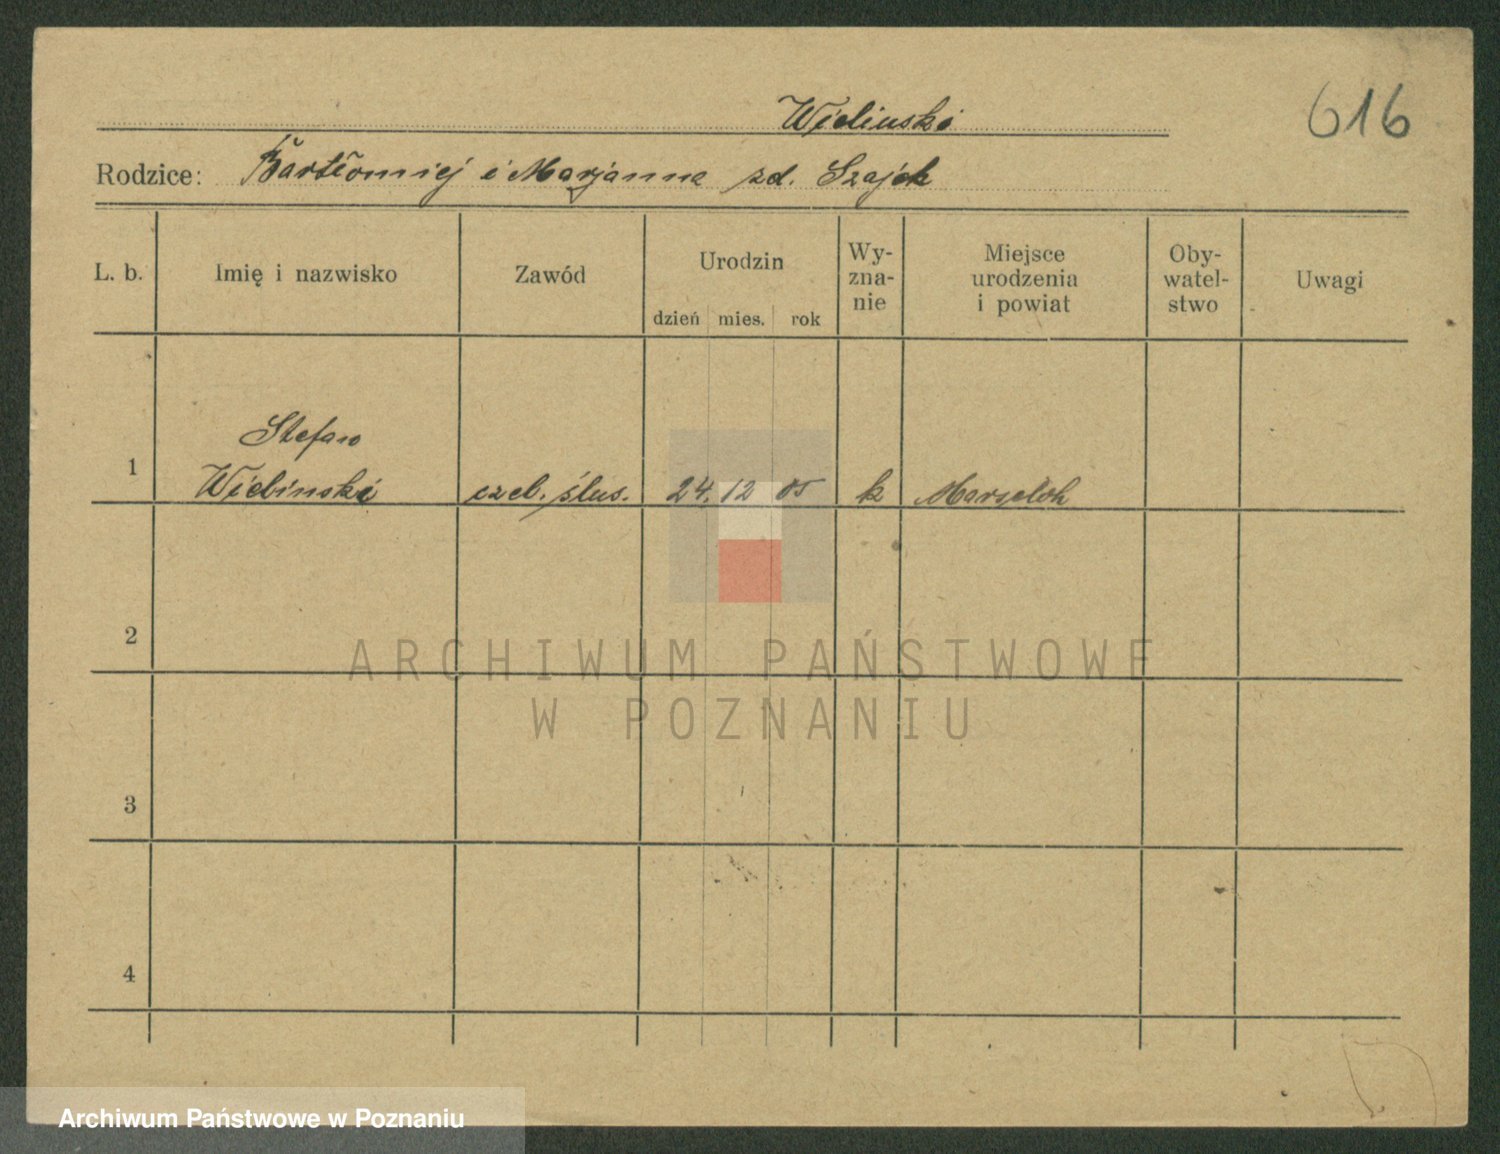 616
Wieliński
Rodzice: Bartłomiej i Marjanna zd. Szajek
L. b.
Imię i nazwisko
Zawód
Urodzin
dzień mies. rok
Wy-
zna-
nie
Miejsce
urodzenia
i powiat
Oby-
watel-
stwo
Uwagi
1
Stefan
Wieliński
czel. ślus.
24. 12 05
k
2
3
4
ARCHIWUM PAŃSTWOWE
W POZNANIU
Archiwum Państwowe w Poznaniu